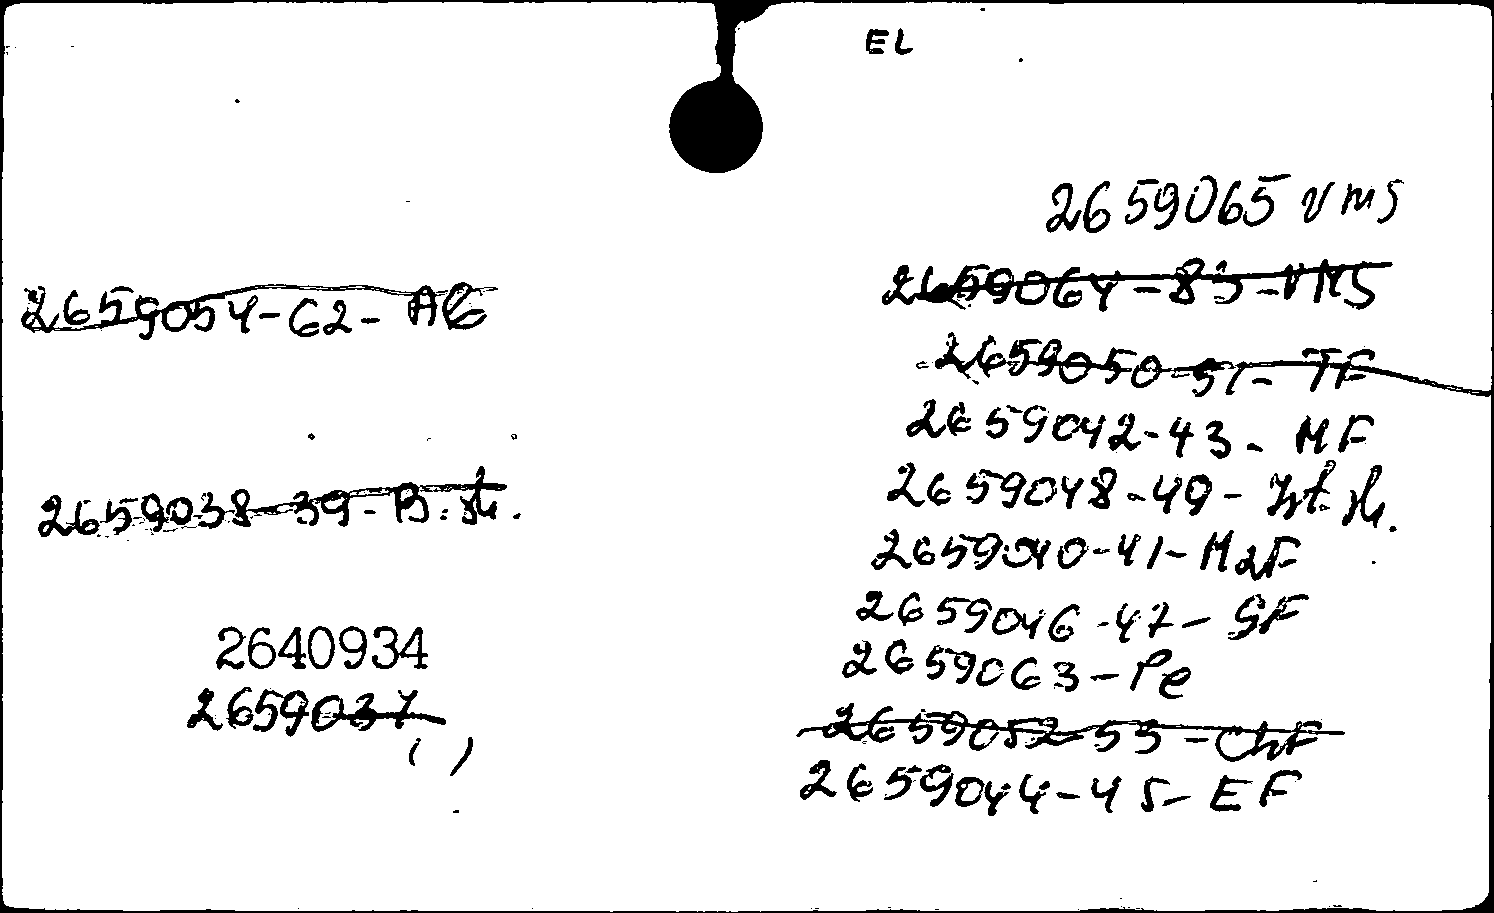 EL
2659065 VMS
2659064-83-VMS
2659054-62-AG
2659050-51-TF
2659042-43-MF
2659048-49-
2659038-39-B.st.
2659040-41-MzF
2659046-47-GF
2640934
2659063-Pe
2659037
2659052-53-ChF
( )
2659044-45-EF